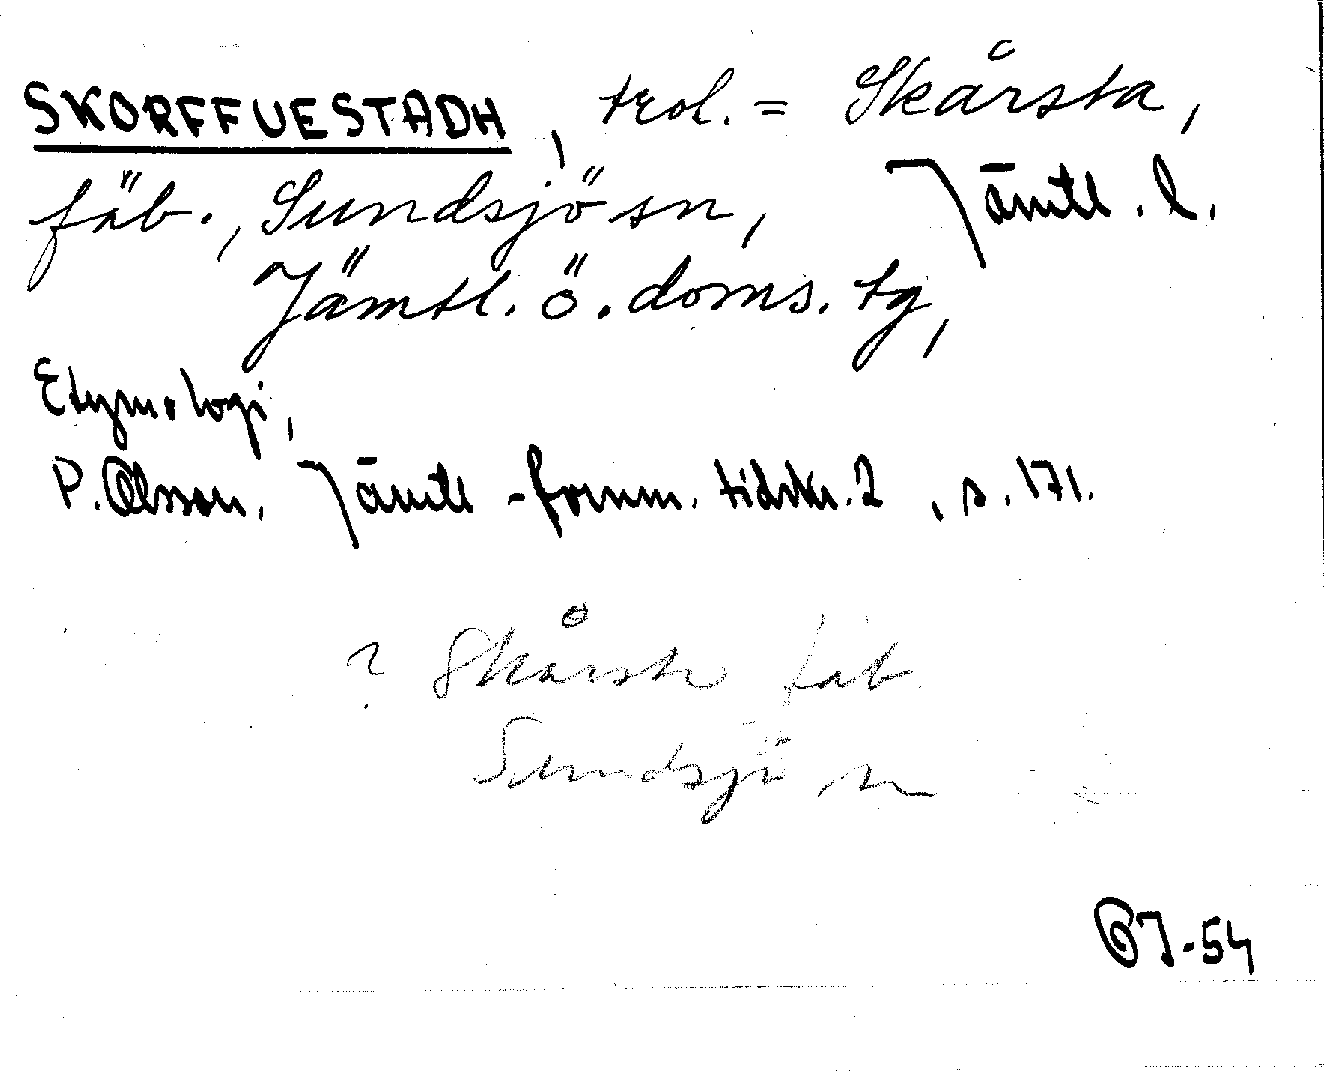 SKORFFUESTADH, trol. = Skårsta,
fäb., Sundsjö sn, Jämtl. l.
Jämtl. ö. doms. tg,
Etymologi,
P. Olsson, Jämtl - fornm. tidskr. 2, s. 171.
? Skårsta fäb
Sundsjö sn
-54